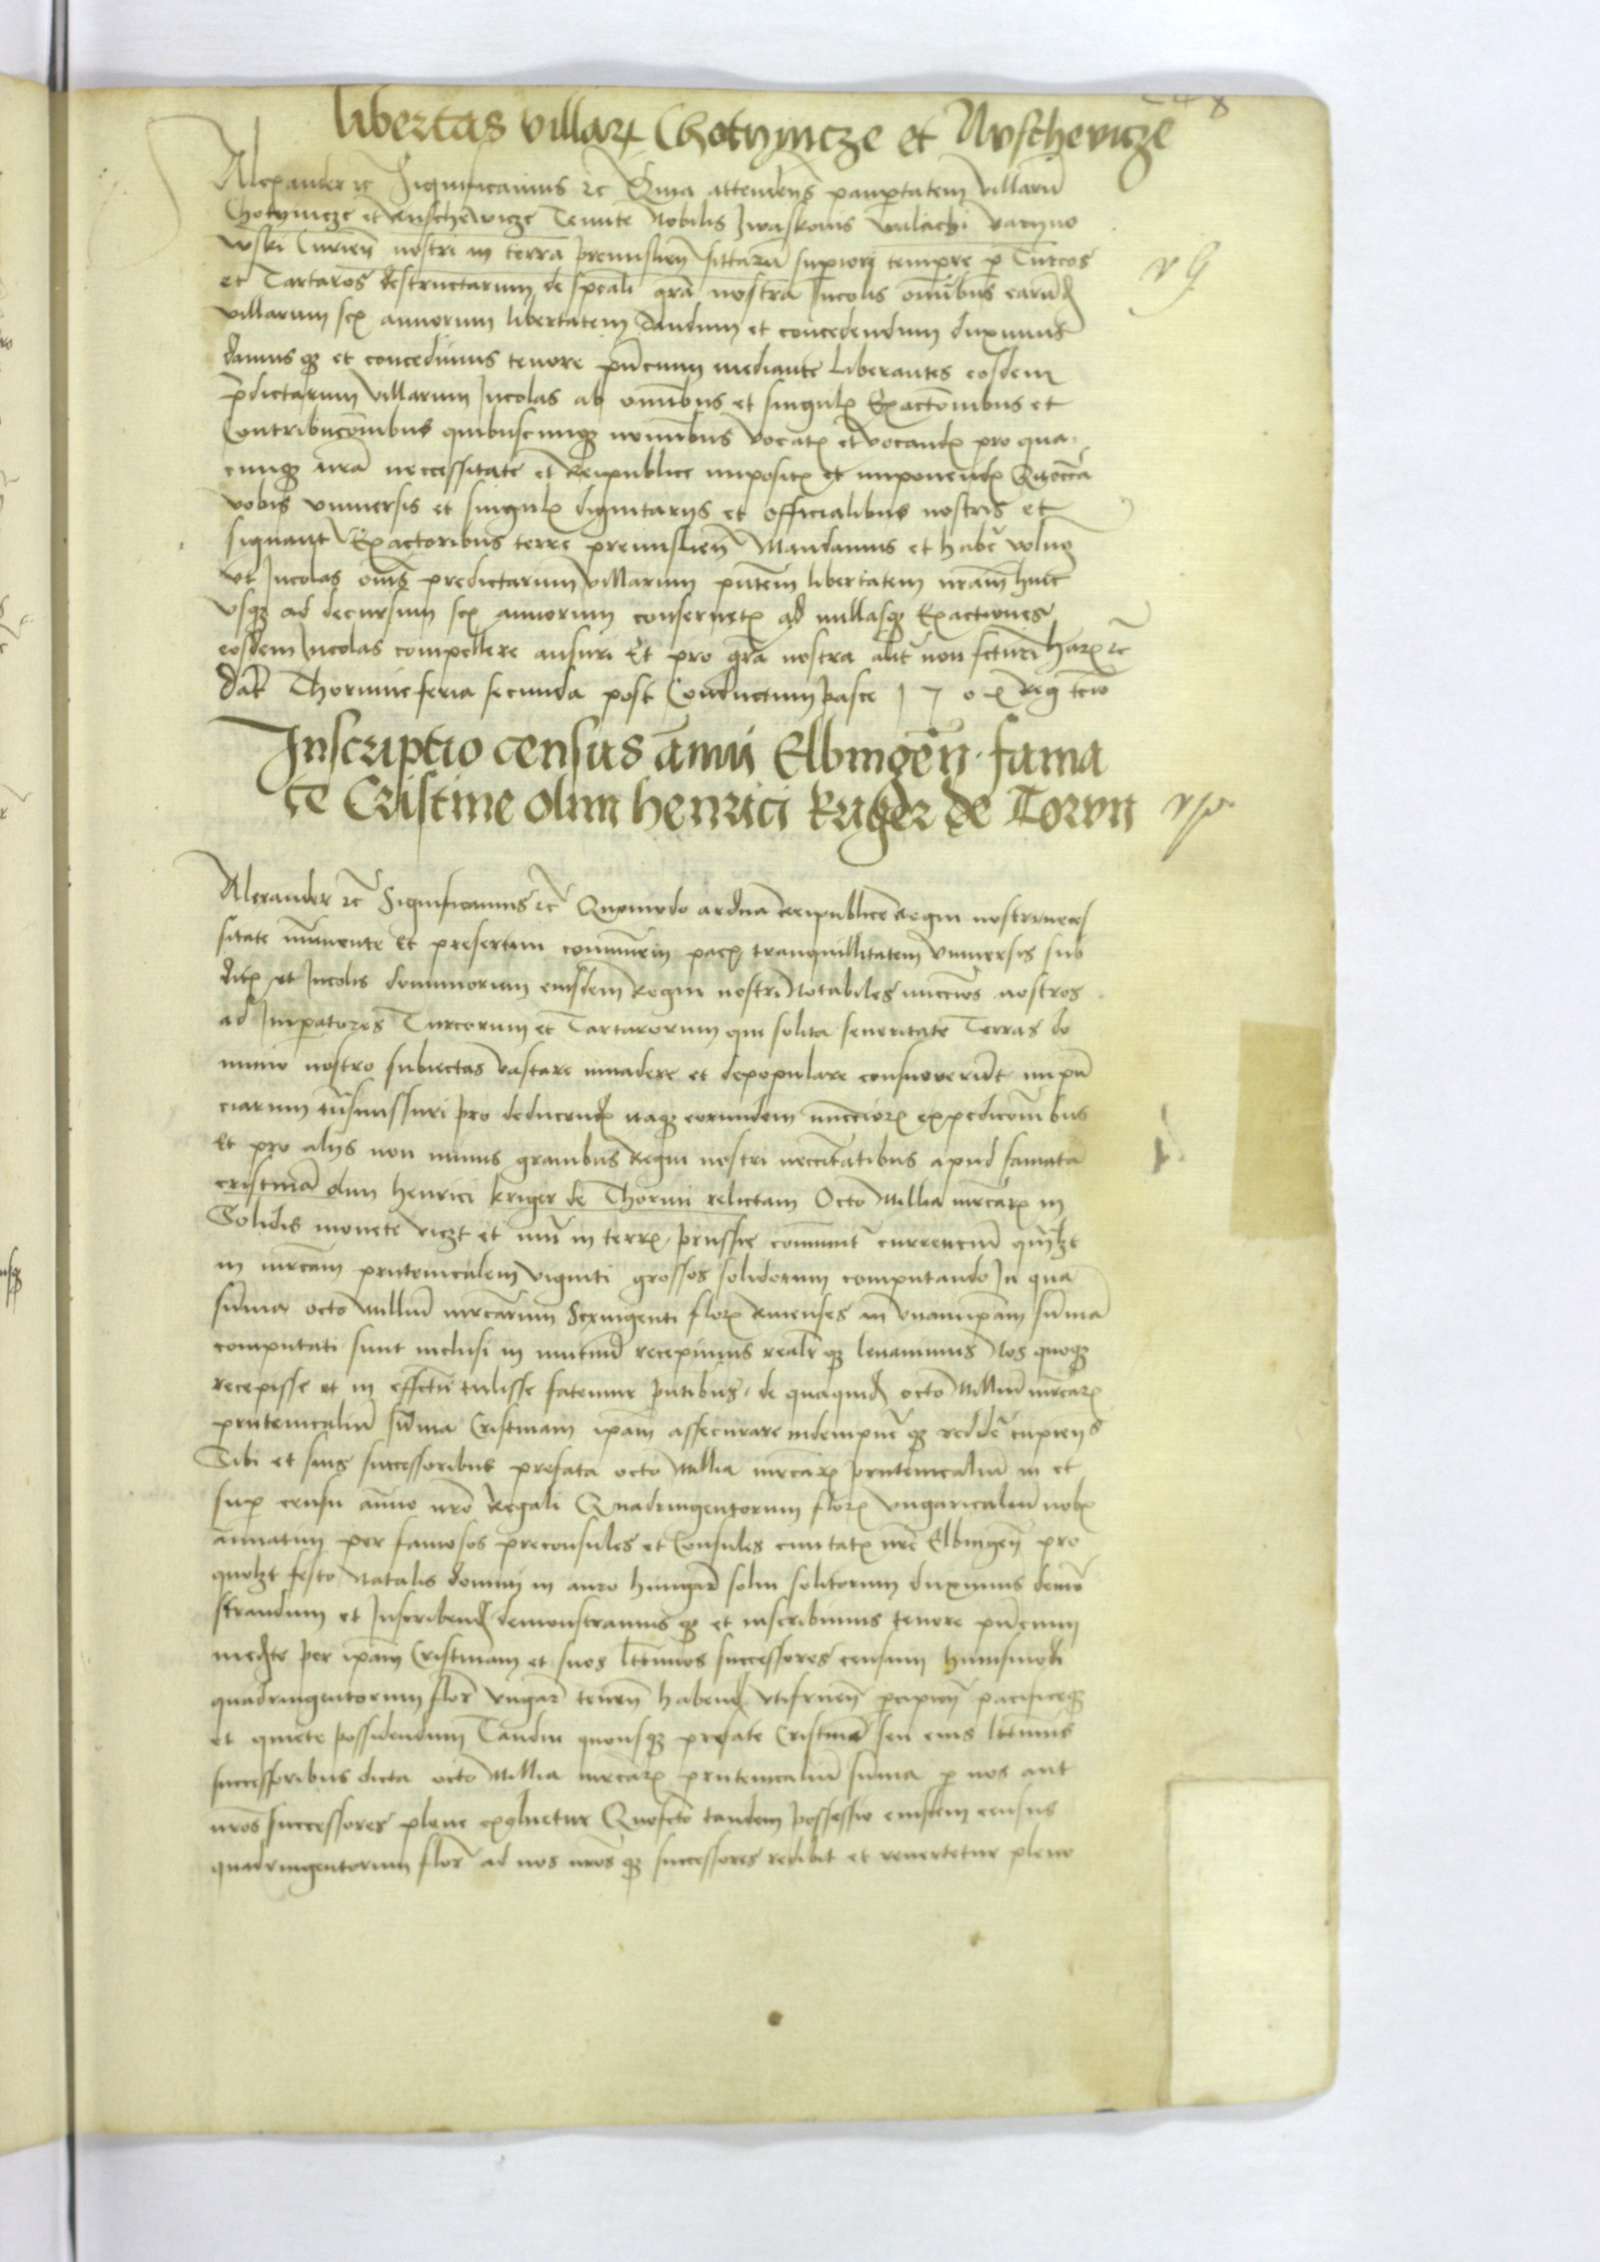 libertas villarx Chotynicze et Nvschevicze
Alexander rc Significamus rc Quia attendens paupertatem villarum
Chotynicze et Nuschewicze Tenute Nobilis Iwaskonis walachi
wski Curien nostri in terra premislien sittarum superiori tempore per Turcos
et Tartaros destructarum de speciali gra nostra Incolis omnibus earund
villarum sex annorum libertatem dandum et concedendum duximus
damus qz et concedimus tenore pncium mediante Liberantes eosdem
predictarum villarum Incolas ab omnibus et singulx Exactonibus et
Contribuconibus quibuscunqz nominibus vocatx et vocandx pro qua
cunqz nra neccessitate et Reipublice impositx et imponendx Quocca
vobis vniuersis et singulx dignitarys et officialibus nostris et
signant Exactoribus terre premislien Mandamus et haber volum
vt Incolas omes predictarum villarum pntem libertatem nram hinc
vsqz ad decursum sex annorum conseruetx ad nullasqz Exactiones
eosdem Incolas compellere ansuri Et pro gra nostra alit non fcturi harx rc
Dat Thorunie feria secunda post Conductum pasce Reg
Inscriptio census annui Elbingen fama
te Cristine olim henrici kriger de Torvn
Alexander rc Significamus rc Quomodo ardua Reipublice Regni nostri neces
sitate iminente Et presertim communem pacx tranquillitatem vniuersis sub
ditx et Incolis dominiorum eiusdem Regni nostri Notabiles nuccios nostros
ad Imperatores Turcorum et Tartarorum qui solita seueritate Terras do
minio nostro subiectas vastare inuadere et depopulare consueuerunt
missuri pro deducendx itaqz eorundem nucciorx expediconibus
Et pro alys non minus grauibus Regni nostri neccitatibus apud famata
cristina olim henrici kriger de Thorun relictam Octo Millia mrcarx in
Solidis monete viczt et nunc in terrx prussie communit currencium qualzt
in mrcam prutenicalem viginti grossos solidorum computando In qua
suma octo Millium mrcarum Sexingenti florx Renenses in vnam ipam suma
computati sunt inclusi in mutuum recepimus realr qz leuauimus Nos quoqz
recepisse et in effectu tulisse fatemur pntibus de quaquid octo Millium mrcarx
prutenicalium suma Cristinam ipam assecurare indempne qz redder cupiens
Sibi et suis successoribus prefata octo Millia mrcarx prutenicalium in et
super censu annuo nro Regali Quadringentorum florx vngaricalium nobx
annatim per famosos preconsules et Consules ciuitatx nre Elbingen pro
quolzt festo Natalis domini in auro hungar solui solitorum duximus demo
strandum et Inscribend demonstramus qz et inscribimus tenore pncium
medte per ipam Cristinam et suos lttimos successores censum huiusmodi
quadringentorum flor vngar tenen habend vtifruen percipien pacificeqz
et quiete possidendum Tamdiu quousqz prefate Cristine seu eius lttimis
successoribus dicta octo Millia mrcarx prutenicalium suma per nos aut
nros successores plene exoluetur Quofcto tandem possessio eiusdem census
quadringentorum flor ad nos nros qz successores redibit et reuertetur pleno